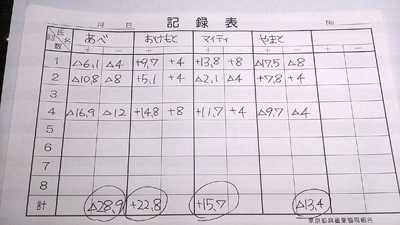 月 日 記録表 No.
氏名 回数 あべ おけもと マイティ やまと
+ − + − + − + − + −
1 △6,1 △4 +9,7 +4 +13,8 +8 △17,5 △8
2 △10,8 △8 +5,1 +4 △2,1 △4 +7,8 +4
3
4 △16,9 △12 +14,8 +8 +11,7 +4 △9,7 △4
5
6
7
8
計 △28,9 +22,8 +15,7 △13,4
東京都麻雀業協同組合